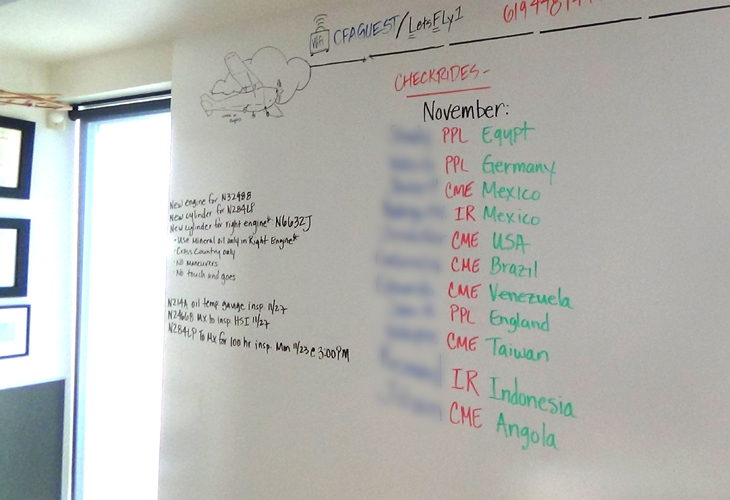 WiFi CFAGUEST/LetsFly1
CHECKRIDES-
November:
PPL Egypt
PPL Germany
CME Mexico
IR Mexico
CME USA
CME Brazil
CME Venezuela
PPL England
CME Taiwan
IR Indonesia
CME Angola
New engine for N3248B
New cylinder for N284LP
New cylinder for right engine* N6632J
-Use Mineral oil only in Right Engine*
-Cross Country only
-No maneuvers
-No touch and goes
N214A oil temp gauge insp 11/27
N2466B Mx to insp. HSI 11/27
N284LP To Mx for 100 hr insp. Mon 11/23 @ 3:00PM